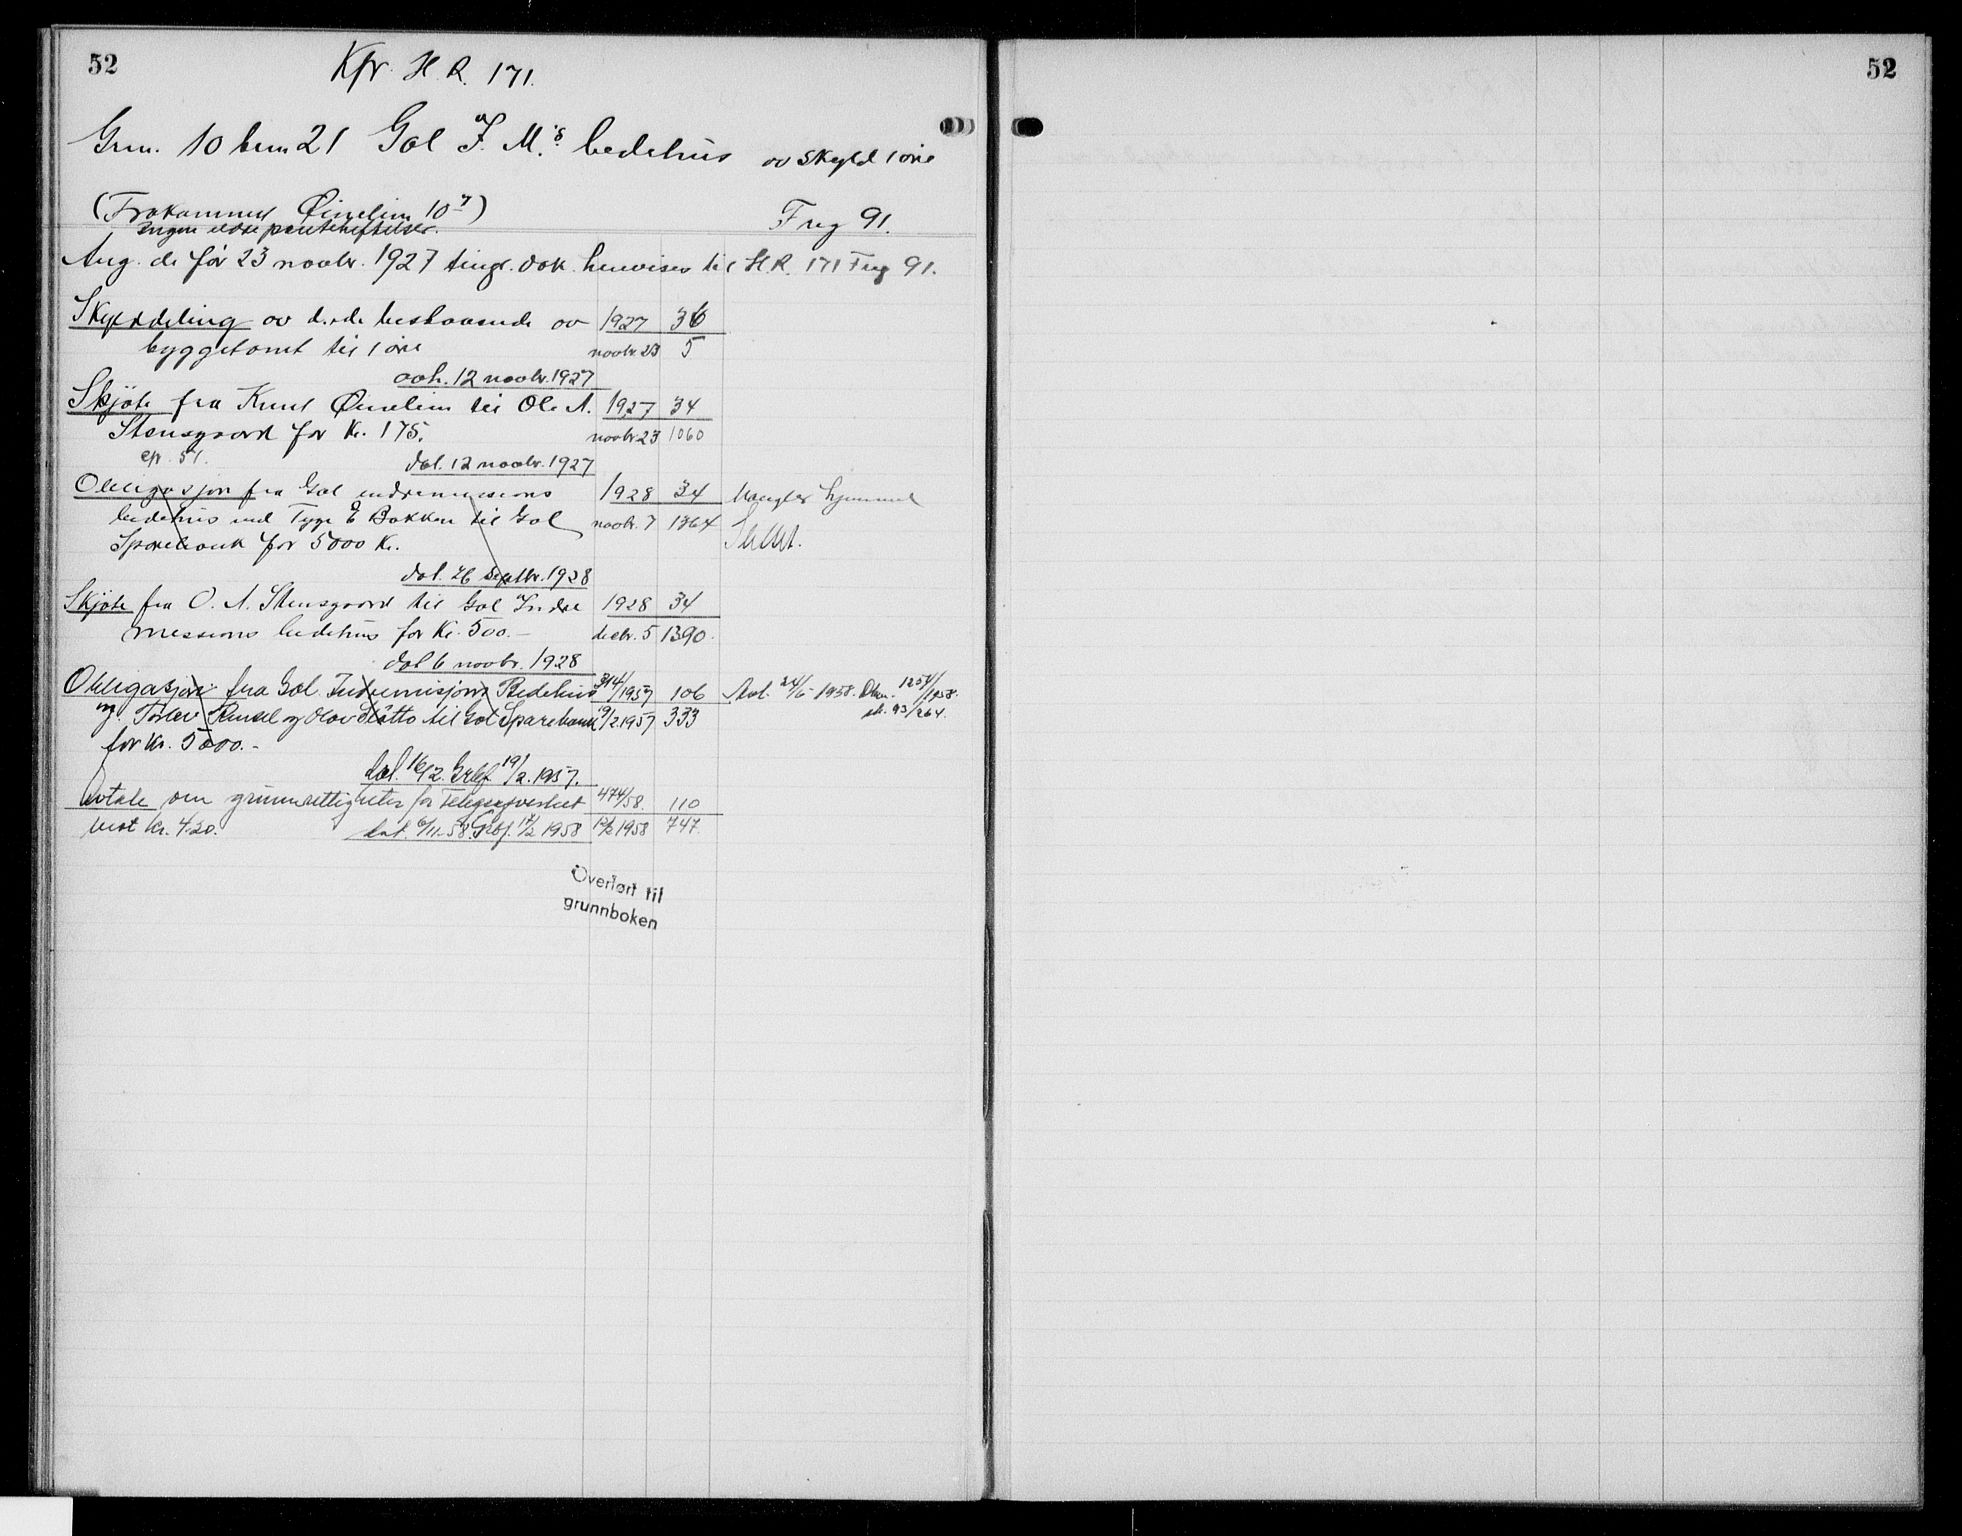 52
Kfr. H. R. 171.
Grm. 10 brm 21 Gol I. M.s bedehus av skyld 1 øre
(Frakommet Øinelien 10 7)
Ingen eldre pantehæftelser.
Freg 91.
Ang. de før 23 novbr. 1927 tingl. dok. henvises til H.R. 171 Freg 91.
Skylddeling av d.d. bestaaende av 1927 36
byggetomt til 1 øre novbr. 23 5
avh. 12 novbr. 1927
Skjøte fra Knut Øinelien til Ole A. 1927 34
Stensgaard for Kr. 175. novbr 23 1060
dat. 12 novbr. 1927
Obligasjon fra Gol indremissions 1928 34 Mangler hjemmel
bedehus ved Tyge E Bakken til Gol novbr. 7 1364 Slettet.
Sparebank for 5000 Kr.
dat. 26 septbr. 1928
Skjøte fra O. A. Stensgaard til Gol Indre 1928 34
missions bedehus for Kr. 500.- decbr. 5 1390.
dat 6 novbr. 1928
Obligasjon fra Gol Indremisjons Bedehus 314/1957 106 Avl. 24/6-1958. Dbnr. 1257/1958.
og Torlev Runsel og Olav Slåtto til Gol Sparebank 19/2 1957 333
for Kr. 5000.-
dat. 16/2. Grbf. 19/2. 1957.
Avtale om grunnrettigheter for Telegrafverket 474/58. 110
mot kr. 420. dat. 6/11-58. Grbf. 12/2 1958 12/2 1958 747.
Overført til
grunnboken
52